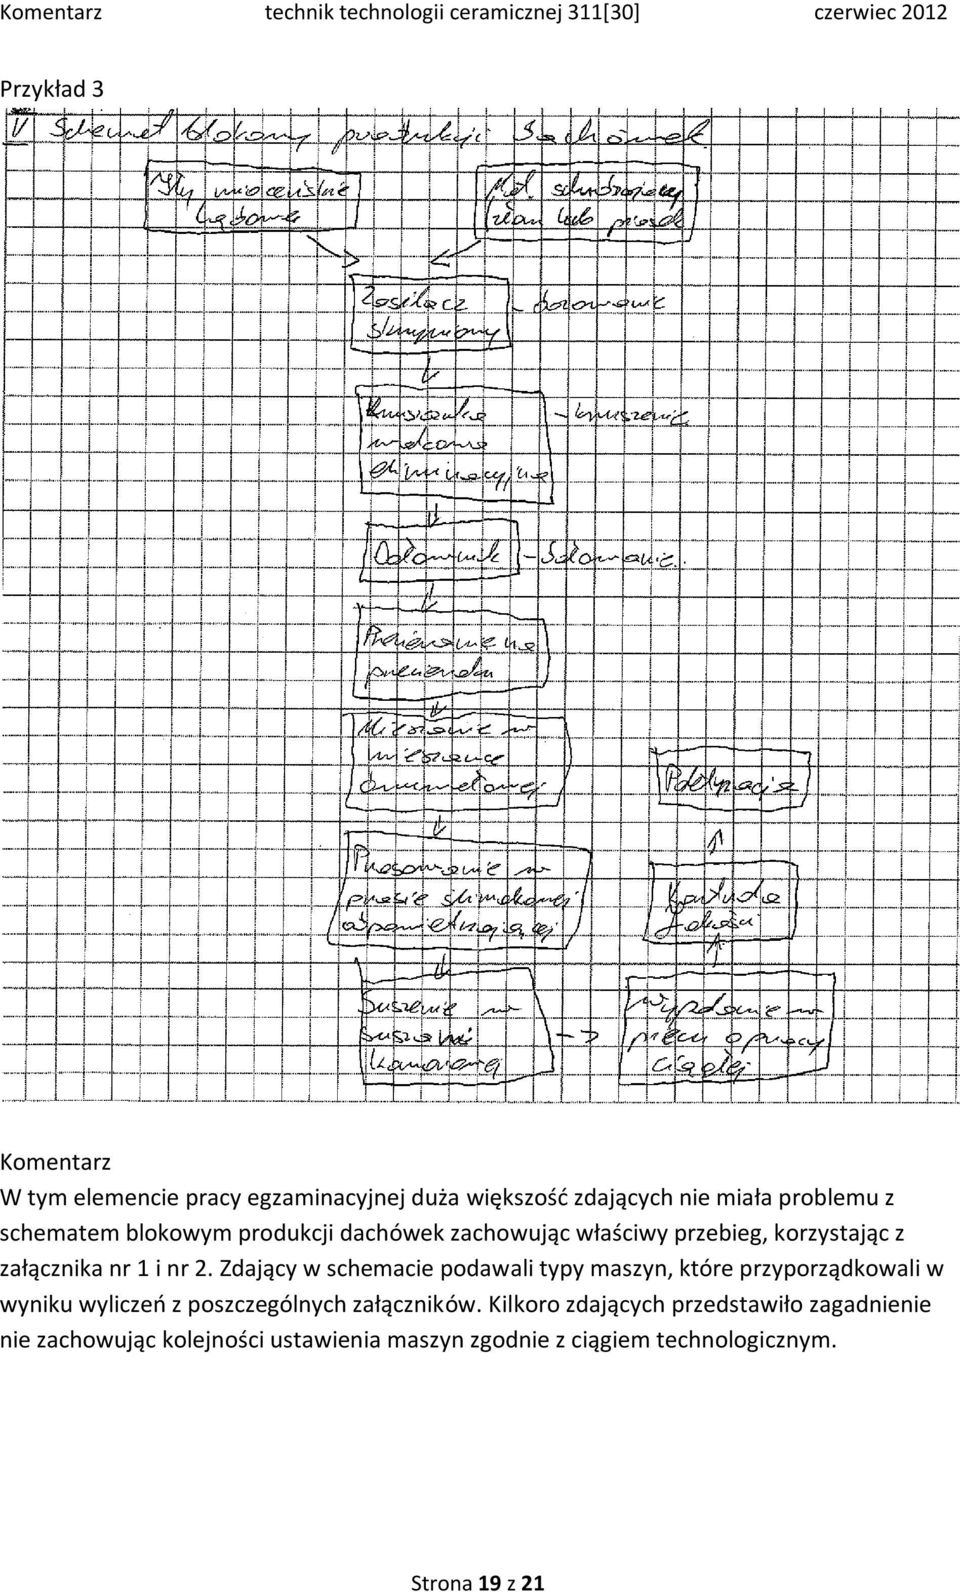 Komentarz technik technologii ceramicznej 311[30] czerwiec 2012
Przykład 3
V Schemat blokowy produkcji dachówek
Iły mioceńskie
lądowe
Mat. schudzający
(złom lub piasek
Zasilacz
skrzyniowy
- dozowanie
Kruszarka
walcowa
eliminacyjna
- kruszenie
Odłownik
- Odłowanie
Przecieranie na
przecieraku
Mieszanie w
mieszarce
dwuwałowej
Prasowanie w
prasie ślimakowej
odpowietrzającej
Suszenie w
suszarni
komorowej
Wypalanie w
piecu o pracy
ciągłej
Kontrola
Jakości
Paletyzacja
Komentarz
W tym elemencie pracy egzaminacyjnej duża większość zdających nie miała problemu z
schematem blokowym produkcji dachówek zachowując właściwy przebieg, korzystając z
załącznika nr 1 i nr 2. Zdający w schemacie podawali typy maszyn, które przyporządkowali w
wyniku wyliczeń z poszczególnych załączników. Kilkoro zdających przedstawiło zagadnienie
nie zachowując kolejności ustawienia maszyn zgodnie z ciągiem technologicznym.
Strona 19 z 21